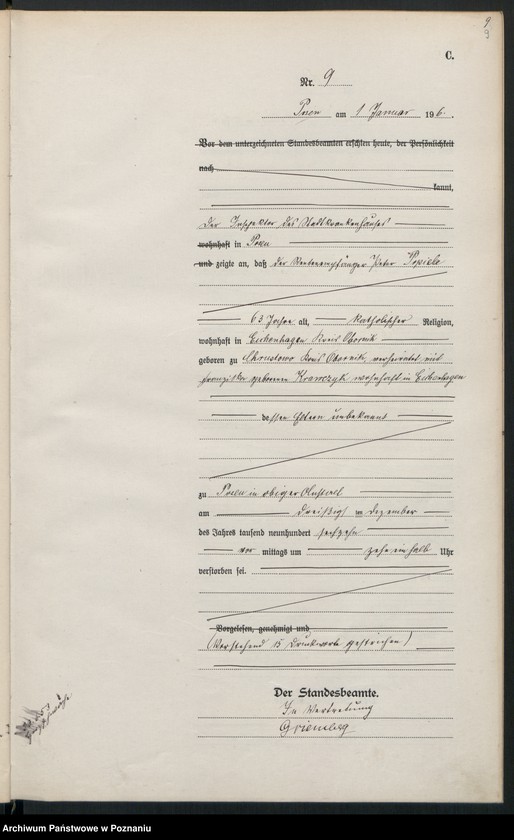 9
9
C.
Nr. 9
Posen am 1 Januar 19
Vor dem unterzeichneten Standesbeamten erschien heute, der Persönlichkeit
nach
kannt,
Der Inspektor des Stadtkrankenhauses
wohnhaft in Posen
und zeigte an, daß der Rentenempfänger Peter Popiele
63 Jahre alt, katholischer Religion,
wohnhaft in Eichenhagen Kreis Obornik
geboren zu Chrustowo Kreis Obornik, verheiratet mit
Franziska geborenen Krawczyk wohnhaft in Eichenhagen
dessen Eltern unbekannt
zu Posen in obiger Anstalt
am dreißigsten Dezember
des Jahres tausend neunhundert sechzehn
vor mittags um zehn ein halb Uhr
verstorben sei.
Vorgelesen, genehmigt und
(Vorstehend 15 Druckworte gestrichen)
Der Standesbeamte.
In Vertretung
Archiwum Państwowe w Poznaniu